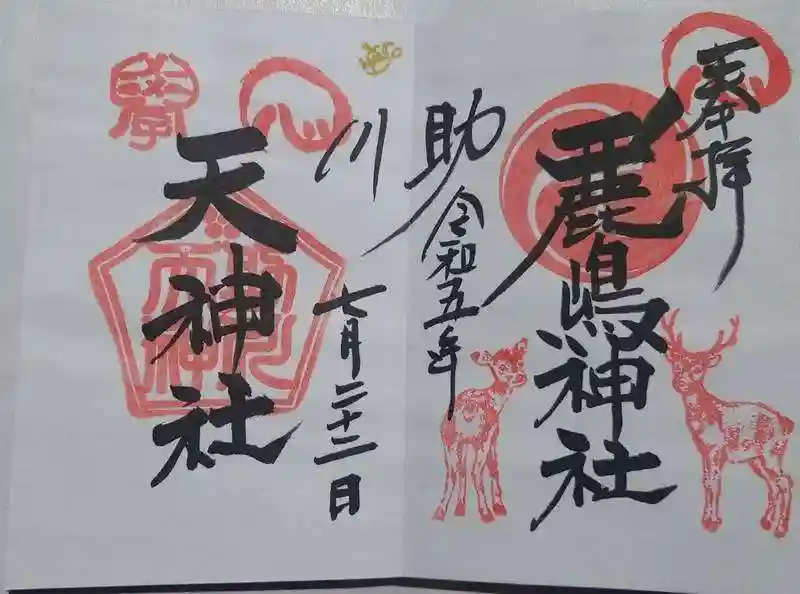 奉拝
鹿嶋神社
助川
令和五年
七月二十二日
天神社
學
心